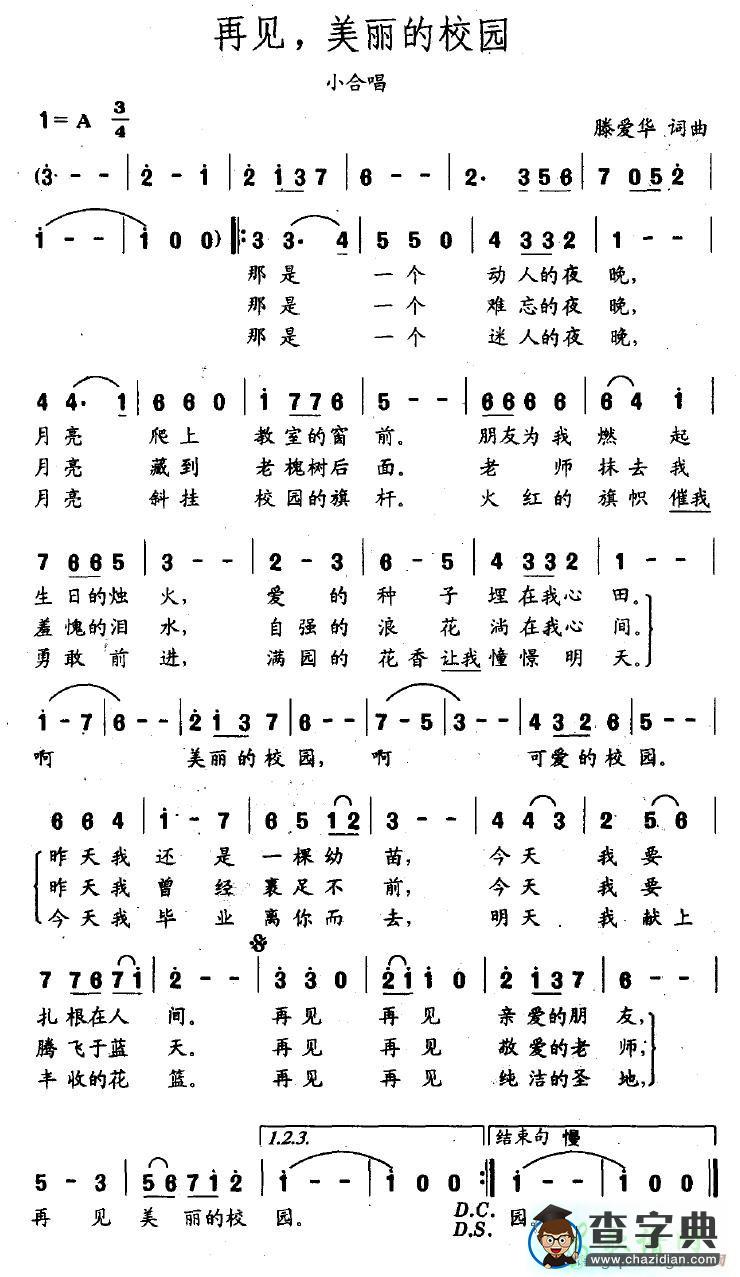 再见，美丽的校园
小合唱
1=A 3/4
滕爱华 词曲
(3 - - | 2 - 1 | 2 1 3 7 | 6 - - | 2· 3 5 6 | 7 0 5 2 |
1 - - | 1 0 0) ‖: 3 3· 4 | 5 5 0 | 4 3 3 2 | 1 - - |
那是 一个 动人的夜晚，
那是 一个 难忘的夜晚，
那是 一个 迷人的夜晚，
4 4· 1 | 6 6 0 | 1 7 7 6 | 5 - - | 6 6 6 6 6 | 6 4 1 |
月亮 爬上 教室的窗前。 朋友为我燃起
月亮 藏到 老槐树后面。 老师抹去我
月亮 斜挂 校园的旗杆。 火红的旗帜催我
7 6 6 5 | 3 - - | 2 - 3 | 6 - 5 | 4 3 3 2 | 1 - - |
生日的烛火， 爱的种子埋在我心田。
羞愧的泪水， 自强的浪花淌在我心间。
勇敢前进， 满园的花香让我憧憬明天。
1 - 7 | 6 - - | 2 1 3 7 | 6 - - | 7 - 5 | 3 - - | 4 3 2 6 | 5 - - |
啊 美丽的校园， 啊 可爱的校园。
6 6 4 | 1 - 7 | 6 5 1 2 | 3 - - | 4 4 3 | 2 5 6 |
昨天我还是一棵幼苗， 今天我要
昨天我曾经裹足不前， 今天我要
今天我毕业离你而去， 明天我献上
7 7 6 7 1 | 2 - - | 3 3 0 | 2 1 1 0 | 2 1 3 7 | 6 - - |
扎根在人间。 再见 再见 亲爱的朋友，
腾飞于蓝天。 再见 再见 敬爱的老师，
丰收的花篮。 再见 再见 纯洁的圣地，
1.2.3. 结束句 慢
5 - 3 | 5 6 7 1 2 | 1 - - | 1 0 0 :‖ 1 - - | 1 0 0 ‖
再见美丽的校园。 D.C. 园。
D.S.
查字典
www.chazidian.com